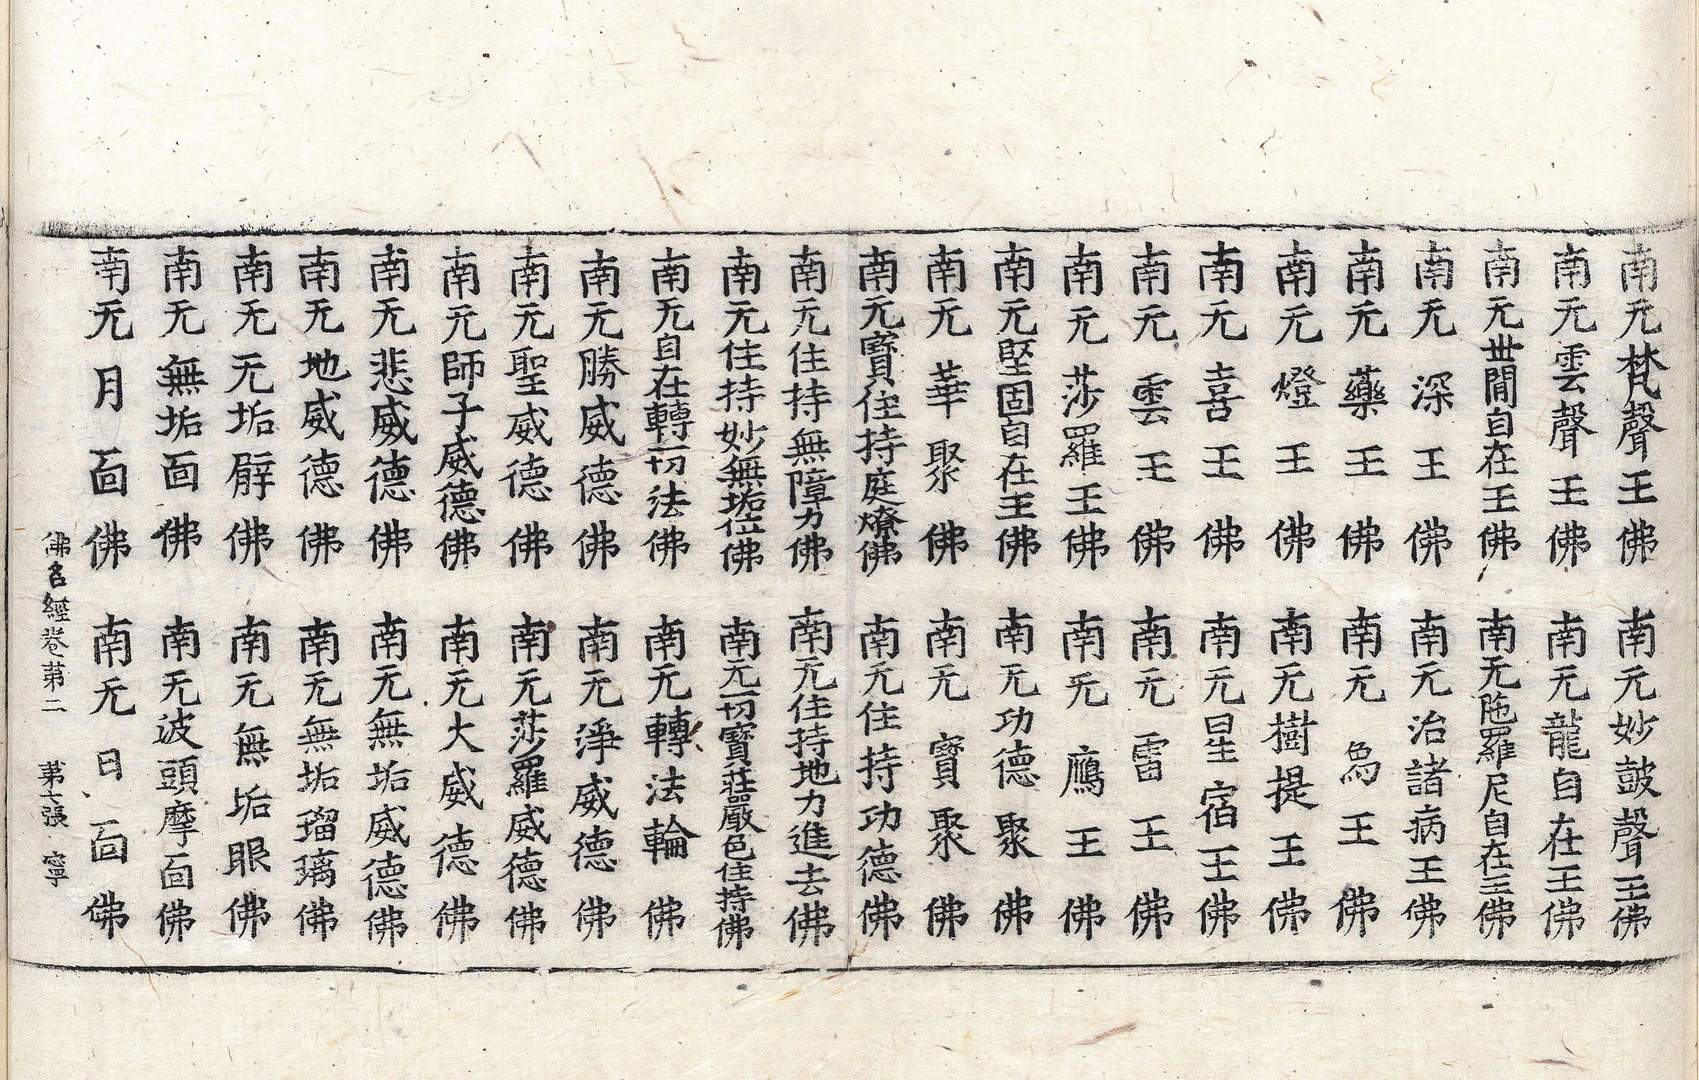 南无梵聲王佛　南无妙皷聲王佛
南无雲聲王佛　南无龍自在王佛
南无世間自在王佛　南无陁羅尼自在王佛
南无深王佛　南无治諸病王佛
南无藥王佛　南无烏王佛
南无燈王佛　南无樹提王佛
南无喜王佛　南无星宿王佛
南无雲王佛　南无雷王佛
南无莎羅王佛　南无鴈王佛
南无堅固自在王佛　南无功德聚佛
南无華聚佛　南无寶聚佛
南无寶住持庭燎佛　南无住持功德佛
南无住持無障力佛　南无住持地力進去佛
南无住持妙無垢位佛　南无一切寶莊嚴色住持佛
南无自在轉一切法佛　南无轉法輪佛
南无勝威德佛　南无淨威德佛
南无聖威德佛　南无莎羅威德佛
南无師子威德佛　南无大威德佛
南无悲威德佛　南无無垢威德佛
南无地威德佛　南无無垢瑠璃佛
南无无垢臂佛　南无無垢眼佛
南无無垢面佛　南无波頭摩面佛
南无月面佛　南无日面佛
佛名經卷第二　第七張　寧